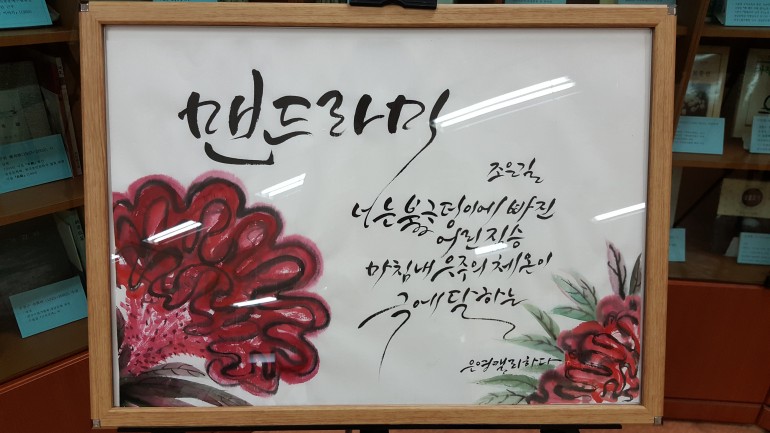 맨드라미
조은길
너는 불구덩이에 빠진
어린 짐승
마침내 우주의 체온이
극에 달하는
은영캘리하다